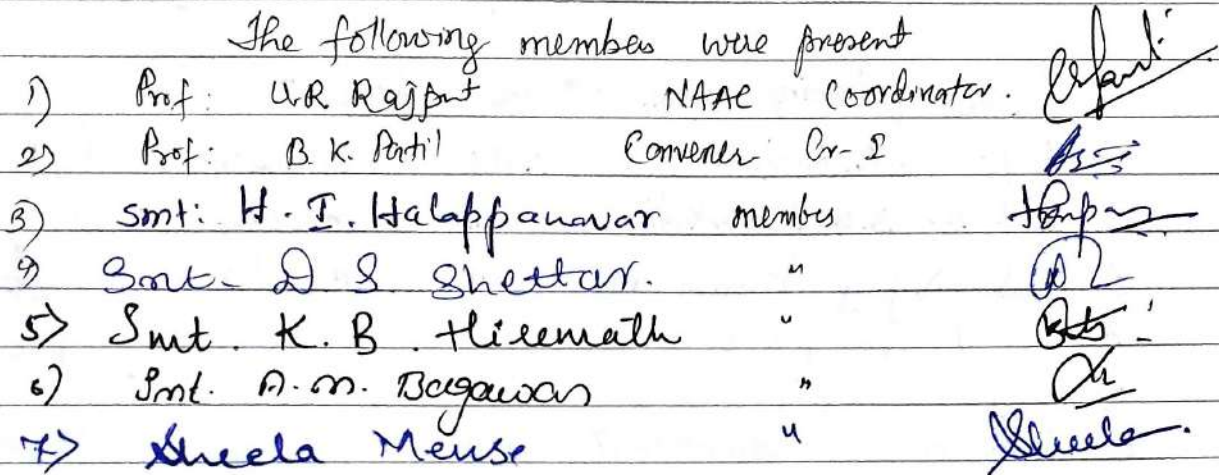 The following members were present
1) Prof: U.R Rajput NAAC Coordinator.
2) Prof: B. K. Patil Convener Cr-I
3) Smt: H. I. Halappanavar member
4) Smt- D S Shettar. "
5) Smt. K. B. Hiremath "
6) Smt. A. M. Bagawan "
7) Sheela Mense " Sheela.